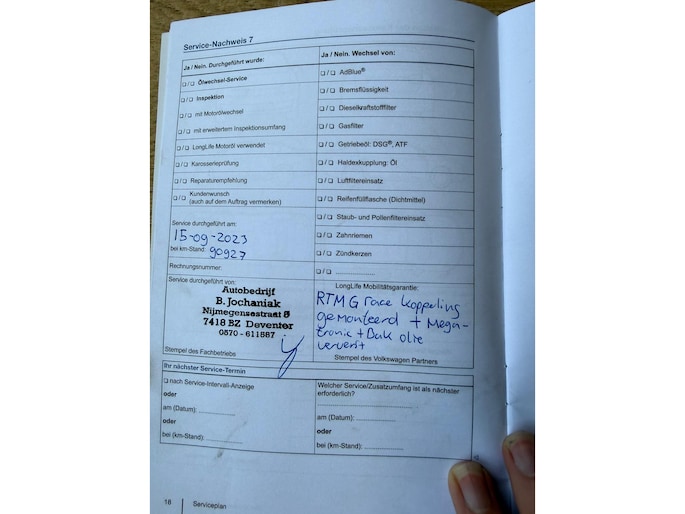 Service-Nachweis 7
Ja / Nein. Durchgeführt wurde:
❑ / ❑ Ölwechsel-Service
❑ / ❑ Inspektion
❑ / ❑ mit Motorölwechsel
❑ / ❑ mit erweitertem Inspektionsumfang
❑ / ❑ LongLife Motoröl verwendet
❑ / ❑ Karosserieprüfung
❑ / ❑ Reparaturempfehlung
❑ / ❑ Kundenwunsch
(auch auf dem Auftrag vermerken)
Service durchgeführt am:
15-09-2023
bei km-Stand: 90927
Rechnungsnummer:
Service durchgeführt von:
Autobedrijf
B. Jochaniak
Nijmegensestraat 5
7418 BZ Deventer
0570 - 611887
Stempel des Fachbetriebs
Ja / Nein. Wechsel von:
❑ / ❑ AdBlue®
❑ / ❑ Bremsflüssigkeit
❑ / ❑ Dieselkraftstofffilter
❑ / ❑ Gasfilter
❑ / ❑ Getriebeöl: DSG®, ATF
❑ / ❑ Haldexkupplung: Öl
❑ / ❑ Luftfiltereinsatz
❑ / ❑ Reifenfüllflasche (Dichtmittel)
❑ / ❑ Staub- und Pollenfiltereinsatz
❑ / ❑ Zahnriemen
❑ / ❑ Zündkerzen
❑ / ❑ ................
LongLife Mobilitätsgarantie:
RTMG race koppeling
gemonteerd + Mega-
tronic + Bak olie
ververst
Stempel des Volkswagen Partners
Ihr nächster Service-Termin
❑ nach Service-Intervall-Anzeige
oder
am (Datum): ................
oder
bei (km-Stand): ................
Welcher Service/Zusatzumfang ist als nächster
erforderlich?
................
am (Datum): ................
oder
bei (km-Stand): ................
18 Serviceplan